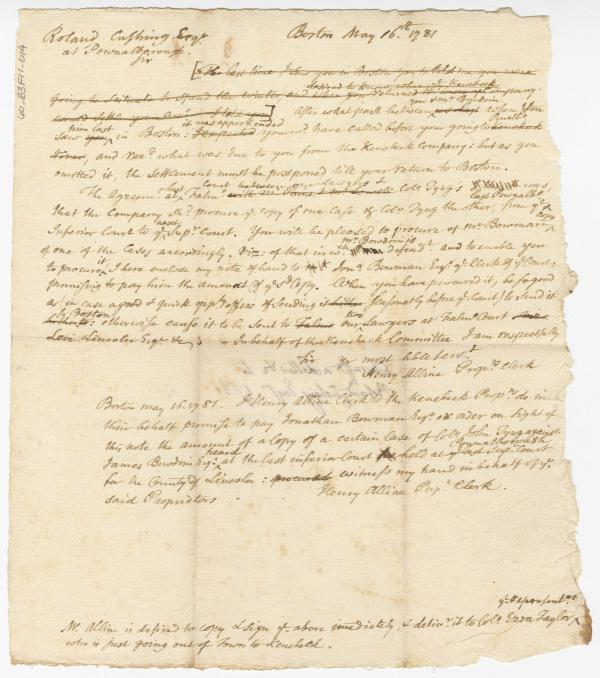 Roland Cushing Esqr. Boston May 16th. 1781
at Pownalborough
Sir
[The last time I saw you in Boston you told me you were
desired to know, when in Kenebeck
going to Scituate to spend the winter, and when you returned
you & mr. Bowdoin
would settle your After what past between when you
him last it was apprehended Pownalbo
saw in Boston: I expected you'd have called before your going to Kenebeck
, and recd. what was due to you from the Kenebeck Company: but as you
omitted it, the settlement must be postponed till your return to Boston.
last Court between our Lawyers &
The Agreemt. at Falmo. with Colo. Tyngs was,
last Pownalbo
that the Company shd. procure ye. copy of one Case & Colo. Tyng the other, from ye.
next copy
Inferior Court to ye. Supr. Court. You will be pleased to procure of mr. Bowman
mr. Bowdoin is
of one of the Cases accordingly. Viz: of that in wc. defendt. and to enable you
it
to procure I here enclose my note of hand to Jona. Bowman Esqr. ye. Clerk of ye. Court,
promising to pay him the amount of ye. sd. Copy. When you have procured it, be so good
as (in case a good & quick oppy. offers of sending it hither seasonably before ye. Court) to send it
to Boston two
hitherto: otherwise cause it to be sent to Falmo our Lawyers at Falmo. Court
Levi Lincoln Esqr. &c. In behalf of the Kenebeck Committee I am respectfully
Sir yr. most hble servt.
Henry Alline Propr. Clerk
Boston may 16. 1781. I Henry Alline Clerk to the Kenebeck Proprs. do in
their behalf promise to pay Jonathan Bowman Esqr. or order on Sight of
this note the amount of a copy of a certain Case of Colo. John Tyng against
heard Pownalborough
James Bowdoin Esqr. at the last inferior Court held at
for the County of Lincoln: procured witness my hand in behalf of ye.
said Proprietors Henry Alline Propr. Clerk.
ye. Represent
Mr. Alline is desired to copy & sign ye. above imediately, & delivr. it to Colo. Ezra Taylor
who is just going out of Town to Kenebeck.
GO-B3F11-014